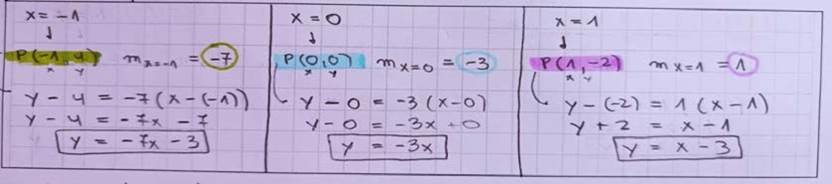 x = -1
↓
P(-1, 4) m x=-1 = -7
x y
y - 4 = -7(x-(-1))
y - 4 = -7x - 7
y = -7x - 3
x = 0
↓
P(0,0) m x=0 = -3
x y
y - 0 = -3(x-0)
y - 0 = -3x + 0
y = -3x
x = 1
↓
P(1, -2) m x=1 = 1
x y
y - (-2) = 1(x-1)
y + 2 = x - 1
y = x - 3